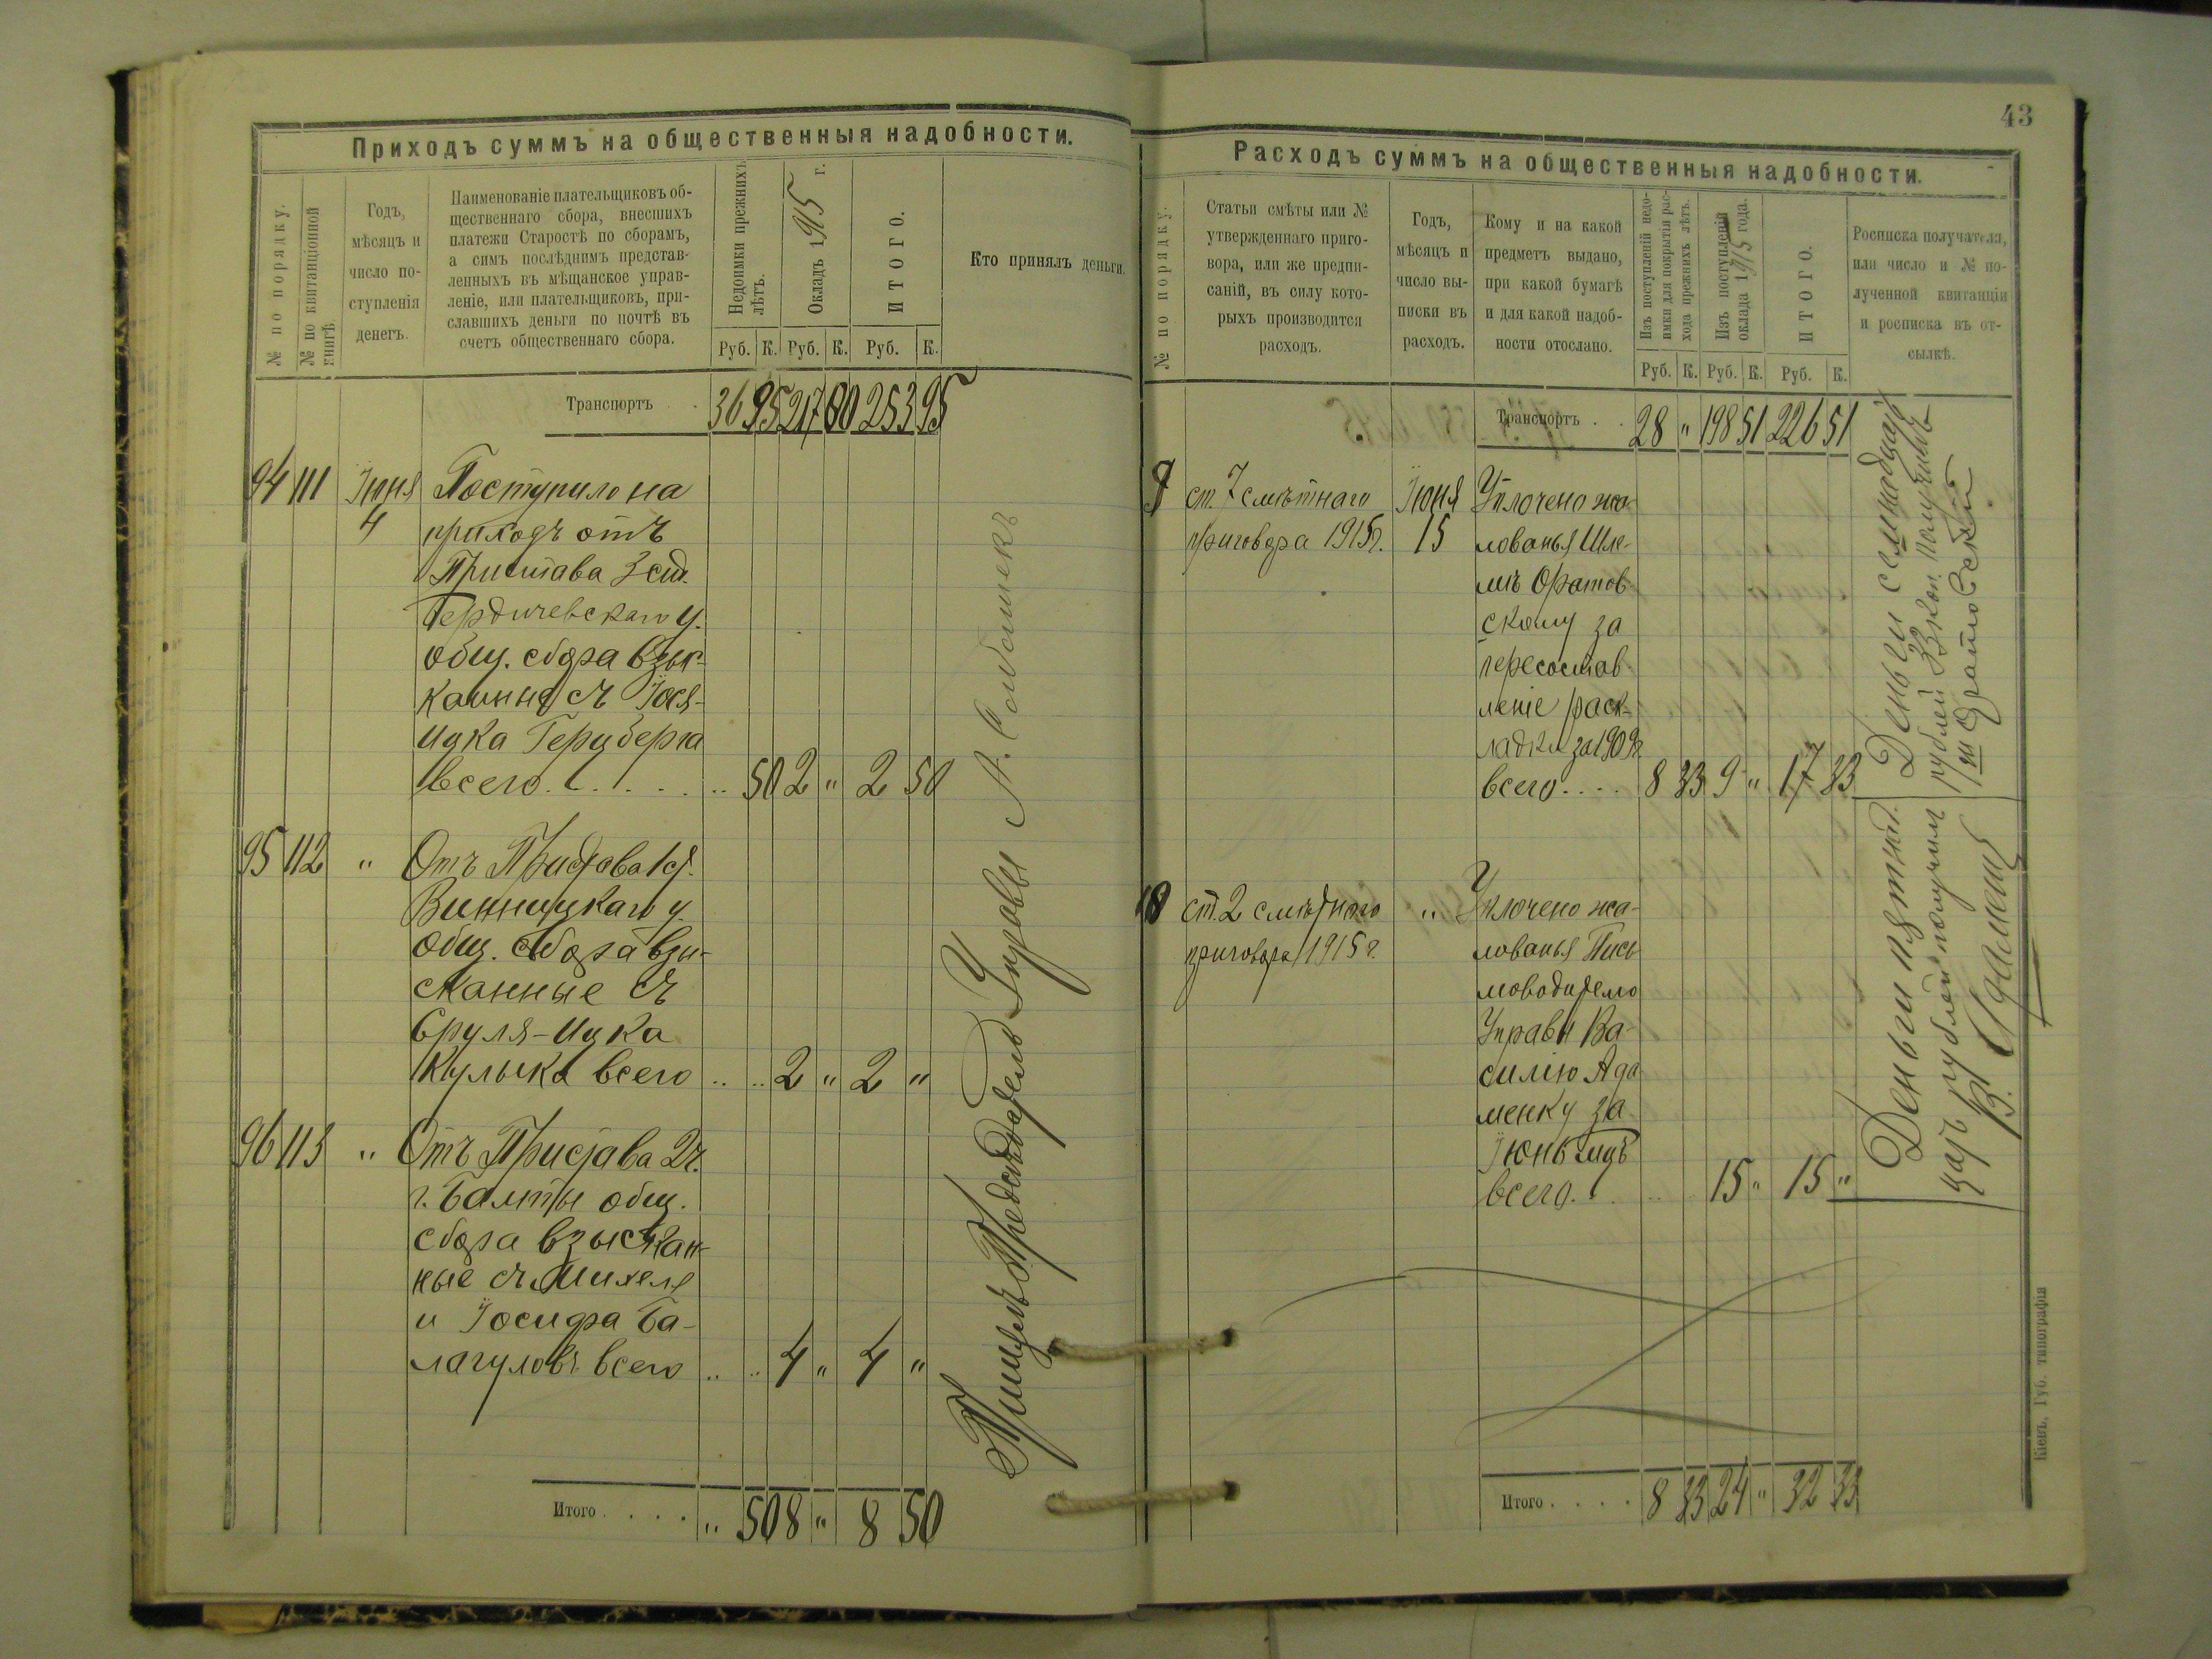 Приходъ суммъ на общественныя надобности.
№ по порядку.
№ по квитанціонной
книгѣ.
Годъ,
мѣсяцъ и
число по-
ступленія
денегъ.
Наименованіе плательщиковъ об-
щественнаго сбора, внесшихъ
платежи Старостѣ по сборамъ,
а симъ послѣднимъ представ-
ленныхъ въ мѣщанское управ-
леніе, или плательщиковъ, при-
славшихъ деньги по почтѣ въ
счетъ общественнаго сбора.
Недоимки прежнихъ
лѣтъ.
Окладъ 1915 г.
ИТОГО.
Кто принялъ деньги.
Руб. К. Руб. К. Руб. К.
Транспортъ . . 36 95 217 00 253 95
94 111 Іюня Поступило на
4 приходъ отъ
Пристава 3 ст.
Бердичевскаго у.
общ. сбора взыс-
канные съ Іося-
Ицка Герцберга
всего . . . . . 50 2 " 2 50
95 112 " Отъ Пристава 1 ст.
Винницкаго у.
общ. сбора взы-
сканные съ
Сруля-Ицка
Кулыка всего .. .. 2 " 2 "
96 113 " Отъ Пристава 2 ч.
г. Балты общ.
сбора взыскан-
ные съ Михеля
и Іосифа Ба-
лагуловъ всего .. .. 4 " 4 "
Принялъ Предсѣдатель Управы А.
Итого . . . . " 50 8 " 8 50
43
Расходъ суммъ на общественныя надобности.
№ по порядку.
Статьи смѣты или №
утвержденнаго приго-
вора, или же предпи-
саній, въ силу кото-
рыхъ производится
расходъ.
Годъ,
мѣсяцъ и
число вы-
писки въ
расходъ.
Кому и на какой
предметъ выдано,
при какой бумагѣ
и для какой надоб-
ности отослано.
Изъ поступленій недо-
имки для покрытія рас-
хода прежнихъ лѣтъ.
Изъ поступленій
оклада 1915 года.
ИТОГО.
Росписка получателя,
или число и № по-
лученной квитанціи
и росписка въ от-
сылкѣ.
Руб. К. Руб. К. Руб. К.
Транспортъ . . 28 " 198 51 226 51
ст. 7 смѣтнаго Іюня Уплочено жа-
приговора 1915 г. 15 лованья Шле-
мѣ Оратов-
скому за
пересостав-
леніе раск-
ладки за 1909 г.
всего . . . . 8 33 9 " 17 33
Деньги семнадцать
рублей 33 коп. получилъ
Ш Оратовскій
18 ст. 2 смѣтного " Уплочено жа-
приговора 1915 г. лованья Пись
моводителю
Управы Ва-
силію Ада
менку за
Іюнь мцъ
всего . 15 " 15 "
Деньги пятнад.
цать рублей получилъ
В. Адаменко
Итого . . . . 8 33 24 " 32 33
Кіевъ, Губ. типографія